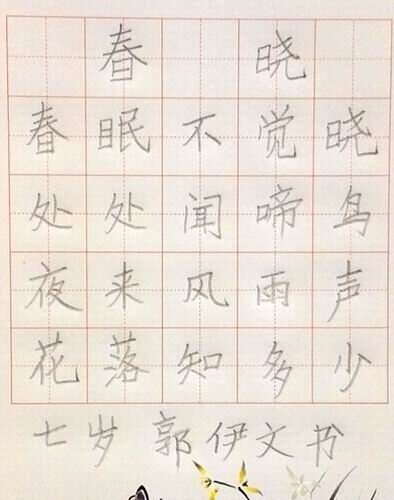 春晓
春眠不觉晓
处处闻啼鸟
夜来风雨声
花落知多少
七岁 郭伊文书